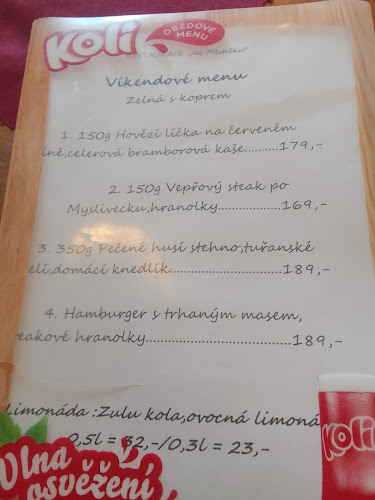 Koli
OBĚDOVÉ
MENU
RESTAURACE "Na Městečku"
Víkendové menu
Zelná s koprem
1. 150g Hovězí líčka na červeném
íně,celerová bramborová kaše..........179,-
2. 150g Vepřový steak po
Myslivecku,hranolky...................169,-
3. 350g Pečené husí stehno,tuřanské
elí,domácí knedlík.......................189,-
4. Hamburger s trhaným masem,
eakové hranolky......................................189,-
Limonáda :Zulu kola,ovocná limoná
0,5l = 32,-/0,3l = 23,-
Vlna
osvěžení
Koli